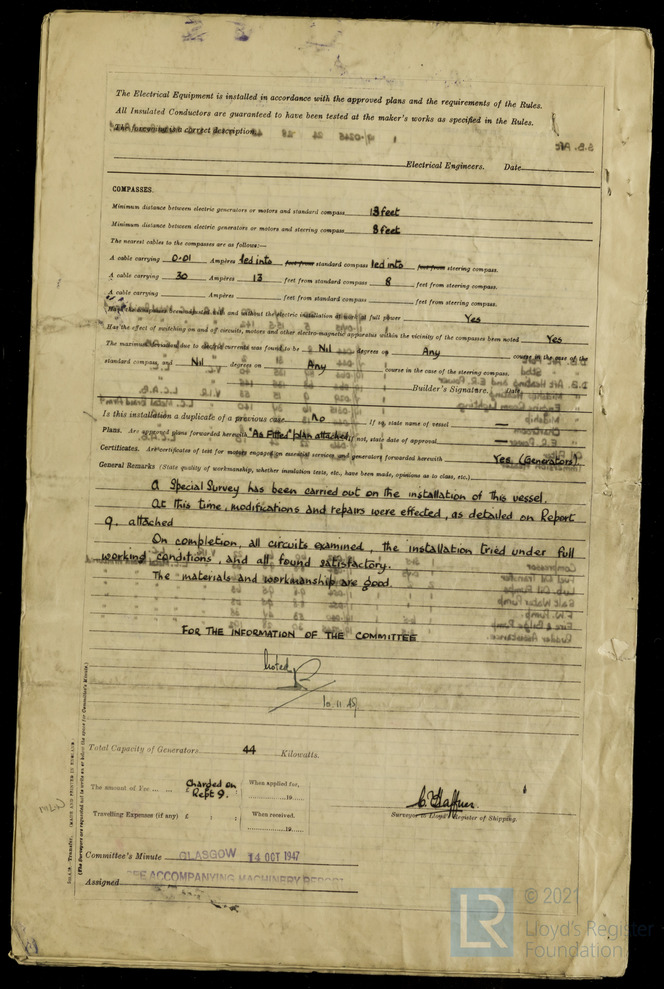 The Electrical Equipment is installed in accordance with the approved plans and the requirements of the Rules.
All Insulated Conductors are guaranteed to have been tested at the maker's works as specified in the Rules.
The foregoing is a correct description.
Electrical Engineers. Date
COMPASSES.
Minimum distance between electric generators or motors and standard compass 13 feet
Minimum distance between electric generators or motors and steering compass 8 feet
The nearest cables to the compasses are as follows:—
A cable carrying 0.01 Ampères led into feet from standard compass led into feet from steering compass.
A cable carrying 30 Ampères 13 feet from standard compass 8 feet from steering compass.
A cable carrying Ampères feet from standard compass feet from steering compass.
Have the compasses been adjusted with and without the electric installation at work at full power Yes
Has the effect of switching on and off circuits, motors and other electro-magnetic apparatus within the vicinity of the compasses been noted Yes
The maximum deviation due to electric currents was found to be Nil degrees on Any course in the case of the
standard compass, and Nil degrees on Any course in the case of the steering compass.
Builder's Signature. Date
Is this installation a duplicate of a previous case No If so, state name of vessel —
Plans. Are approved plans forwarded herewith "As Fitted" plan attached If not, state date of approval —
Certificates. Are certificates of test for motors engaged on essential services and generators forwarded herewith Yes (Generators)
General Remarks (State quality of workmanship, whether insulation tests, etc., have been made, opinions as to class, etc.)
A Special Survey has been carried out on the installation of this vessel.
At this time, modifications and repairs were effected, as detailed on Report
9. attached
On completion, all circuits examined, the installation tried under full
working conditions, and all found satisfactory.
The materials and workmanship are good.
FOR THE INFORMATION OF THE COMMITTEE
Noted
Total Capacity of Generators 44 Kilowatts.
The amount of Fee Charged on Rept 9. When applied for, 19
Travelling Expenses (if any) £ : : When received, 19
Surveyor to Lloyd's Register of Shipping.
Committee's Minute GLASGOW 14 OCT 1947
Assigned SEE ACCOMPANYING MACHINERY REPORT
(MADE AND PRINTED IN ENGLAND.)
(The Surveyors are requested not to write on or below the space for Committee's Minute.)
LR © 2021
Lloyd's Register
Foundation